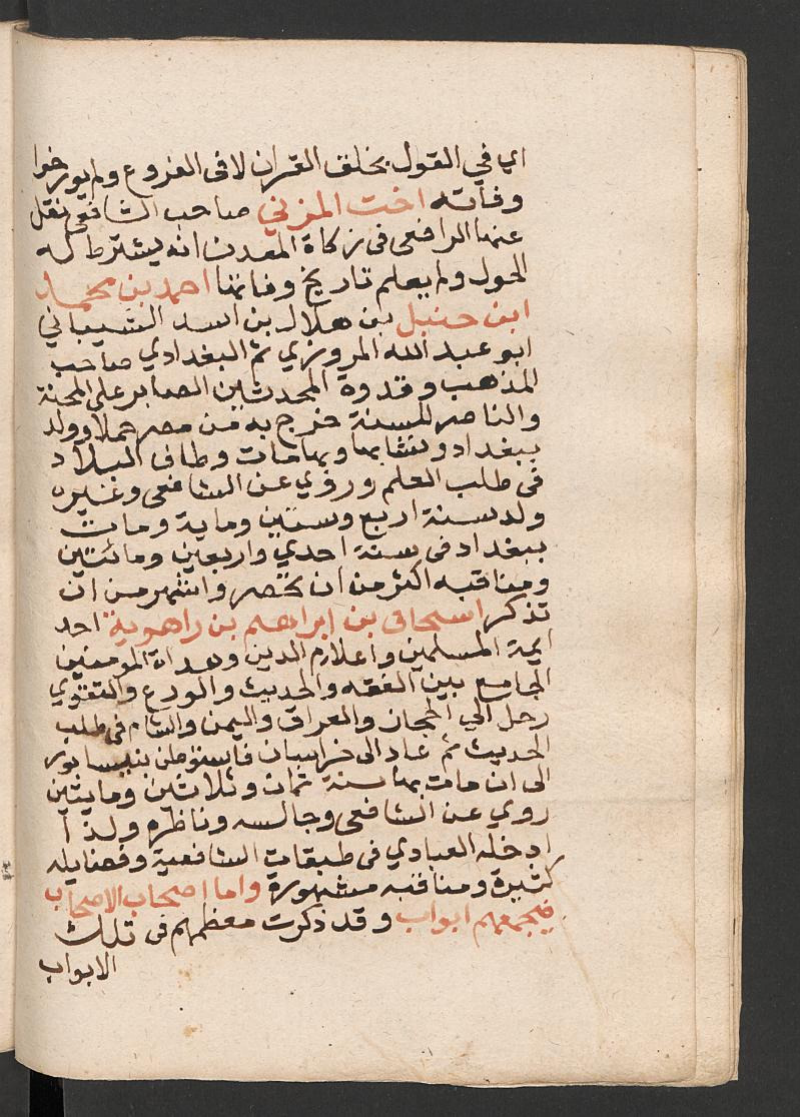 اي في القول بخلق القران لا في الفروع ولم يورخوا
وفاته اخت المزني صاحب الشافعي نقل
عنها الرافعي في زكاة المعدن انه يشترط له
الحول ولم يعلم تاريخ وفاتها احمد بن محمد
ابن حنبل بن هلال بن اسد الشيباني
ابو عبد الله المروزي ثم البغدادي صاحب
المذهب وقدوة المحدثين الصابر على المحنة
والناصر للسنة خرج به من مصر حملا وولد
ببغداد ونشا بها وبها مات وطاف البلاد
في طلب العلم وروي عن الشافعي وغيره
ولد سنة اربع وستين وماية ومات
ببغداد في سنة احدي واربعين ومائتين
ومناقبه اكثر من ان تحصر واشهر من ان
تذكر اسحاق بن ابراهيم بن راهوية احد
ايمة المسلمين واعلام الدين وهداة المومنين
الجامع بين الفقه والحديث والورع والتقوي
رحل الي الحجاز والعراق واليمن والشام في طلب
الحديث ثم عاد الى خراسان فاستوطن بنيسابور
الى ان مات بها سنة ثمان وثلاثين ومايتين
روي عن الشافعي وجالسه وناظره ولذا
ادخله العبادي في طبقات الشافعية وفضايله
كثيرة ومناقبه مشهورة واما اصحاب الاصحاب
فيجمعهم ابواب وقد ذكرت معظمهم في تلك
الابواب